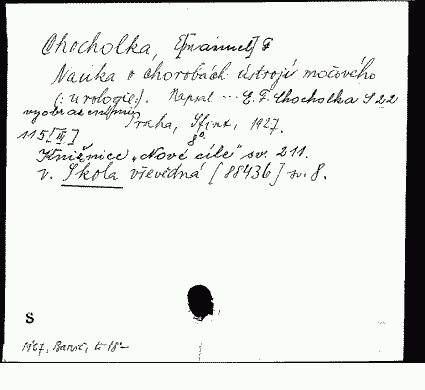 Chocholka, E[manuel] F
Nauka o chorobách ústrojí močového
(: urologie:). Napsal ... E. F. Chocholka S 22
vyobrazeními
Praha, Sfinx, 1927.
115 [III] 8°
Knižnice „Nové cíle" sv. 211.
v. Škola vševědná [88436] sv. 8.
S